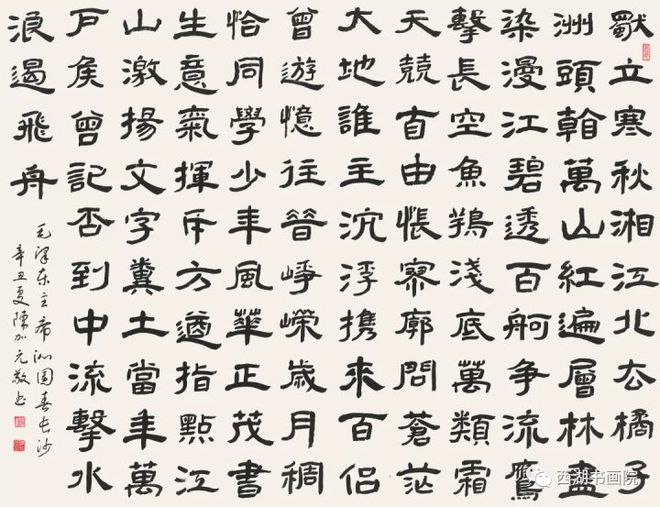 獨立寒秋湘江北去橘子
洲頭看萬山紅遍層林盡
染漫江碧透百舸争流鷹
擊長空魚翔淺底萬類霜
天競自由悵寥廓問蒼茫
大地誰主沉浮携來百侣
曾遊憶往昔崢嶸歲月稠
恰同學少年風華正茂書
生意氣揮斥方遒指點江
山激揚文字糞土當年萬
戶侯曾記否到中流擊水
浪遏飛舟
毛泽东主席沁園春长沙
辛丑夏陳加元敬书
西湖书画院